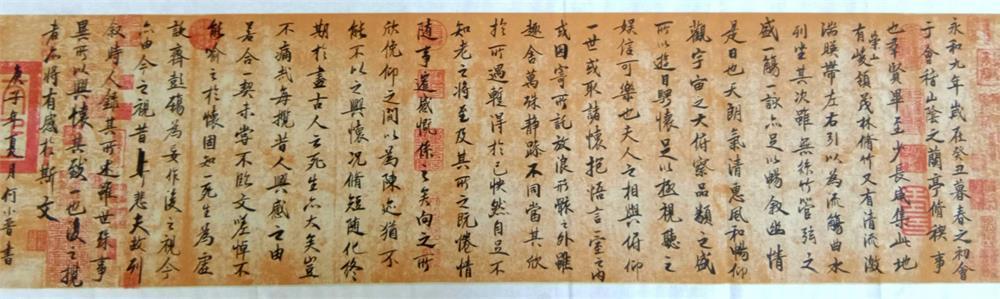 永和九年歲在癸丑暮春之初會
于會稽山陰之蘭亭脩稧事
也羣賢畢至少長咸集此地
有崇山峻領茂林脩竹又有清流激
湍暎帶左右引以為流觴曲水
列坐其次雖無絲竹管弦之
盛一觴一詠亦足以暢敘幽情
是日也天朗氣清惠風和暢仰
觀宇宙之大俯察品類之盛
所以遊目騁懷足以極視聽之
娛信可樂也夫人之相與俯仰
一世或取諸懷抱悟言一室之內
或因寄所託放浪形骸之外雖
趣舍萬殊靜躁不同當其欣
於所遇蹔得於己快然自足不
知老之將至及其所之既惓情
隨事遷感慨係之矣向之所
欣俛仰之間以為陳迹猶不
能不以之興懷況脩短隨化終
期於盡古人云死生亦大矣豈
不痛哉每攬昔人興感之由
若合一契未嘗不臨文嗟悼不
能喻之於懷固知一死生為虛
誕齊彭殤為妄作後之視今
亦由今之視昔悲夫故列
敘時人錄其所述雖世殊事
異所以興懷其致一也後之攬
者亦將有感於斯文
庚子年夏月何小書